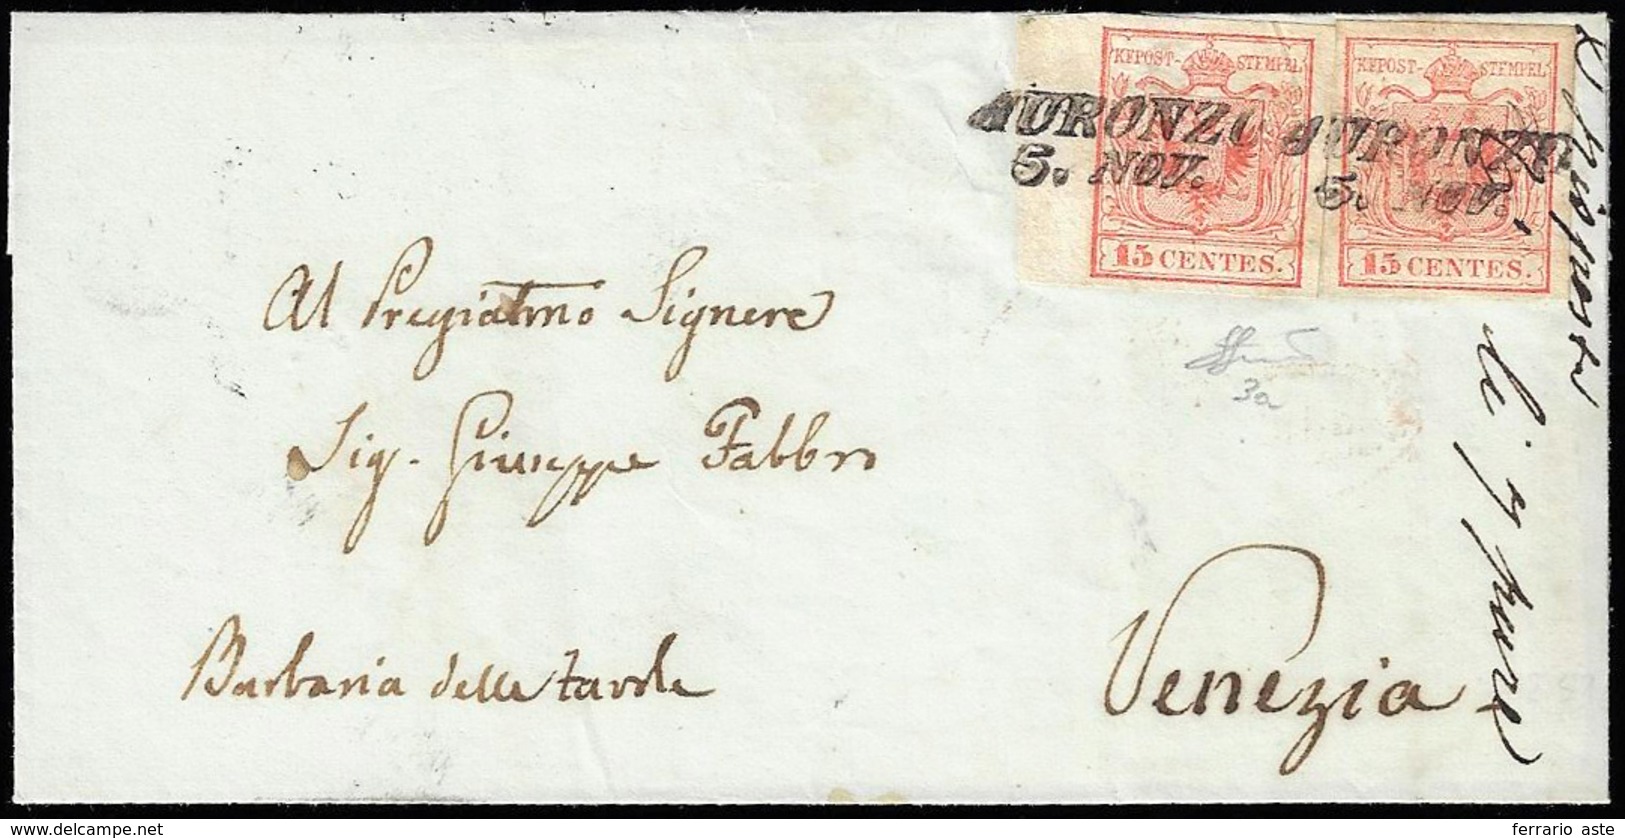 KFPOST-STEMPEL
KFPOST-STEMPEL
AURONZO
5. NOV.
AURONZO
5. NOV.
15 CENTES.
15 CENTES.
3a
Al Pregiatmo Signore
Sig. Giuseppe Fabbro
Barbaria delle tavole
Venezia
Risposta
li 7
ferrario aste